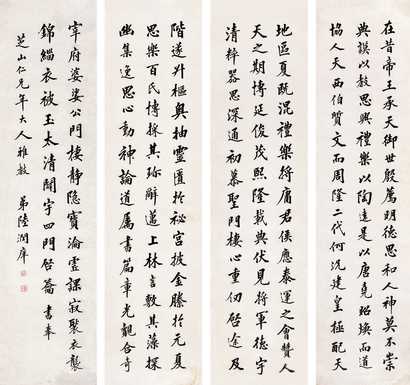 在昔帝王承天御世殷薦明德思和人神莫不崇
典謨以教思興禮樂以陶遠是以唐堯昭煥而道
協人天西伯質文而周隆二代何況建皇極配天
地區夏既混禮樂緝庸君侯應泰運之會贊人
天之期博延俊茂熙隆載典伏見將軍德宇
清粹器思深通初慕聖門棲心重仞啓塗及
階遂升樞奧抽靈匱於秘宮披金縢於元夏
思樂百氏博採其珍辭邁上林言敷其藻探
幽集逸思心動神論道屬書篇章光覿合奇
宰府婆娑公門棲靜隱寶淪虛課寂聚衣襲
錦緇衣被玉太清闢宇四門啓籥 書奉
芝山仁兄年大人雅教 弟陸潤庠